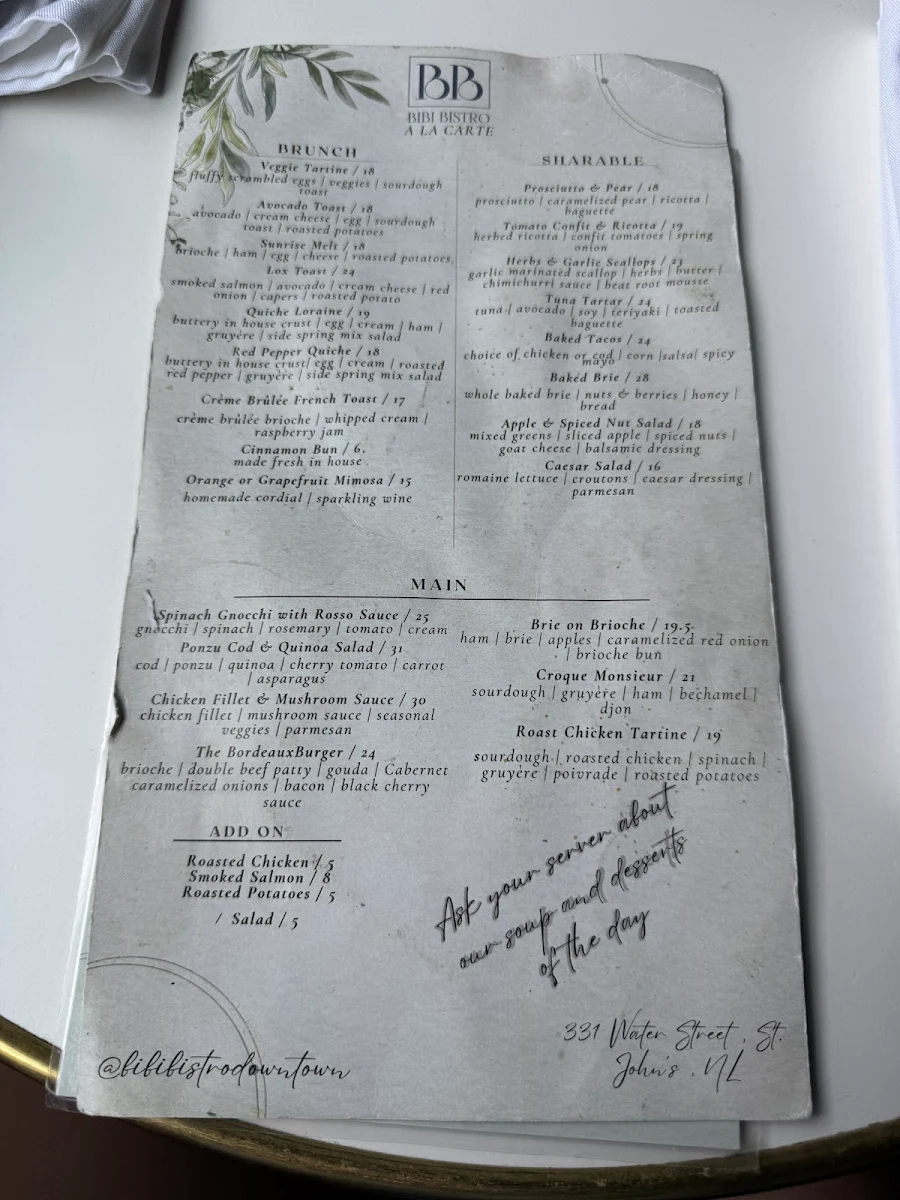 BB
BIBI BISTRO
A LA CARTE
BRUNCH
Veggie Tartine / 18
fluffy scrambled eggs | veggies | sourdough
toast
Avocado Toast / 18
avocado | cream cheese | egg | sourdough
toast | roasted potatoes
Sunrise Melt / 18
brioche | ham | egg | cheese | roasted potatoes
Lox Toast / 24
smoked salmon | avocado | cream cheese | red
onion | capers | roasted potato
Quiche Loraine / 19
buttery in house crust | egg | cream | ham |
gruyère | side spring mix salad
Red Pepper Quiche / 18
buttery in house crust| egg | cream | roasted
red pepper | gruyère | side spring mix salad
Crème Brûlée French Toast / 17
crème brûlée brioche | whipped cream |
raspberry jam
Cinnamon Bun / 6.
made fresh in house
Orange or Grapefruit Mimosa / 15
homemade cordial | sparkling wine
SHARABLE
Prosciutto & Pear / 18
prosciutto | caramelized pear | ricotta |
baguette
Tomato Confit & Ricotta / 19
herbed ricotta | confit tomatoes | spring
onion
Herbs & Garlic Scallops / 23
garlic marinated scallop | herbs | butter |
chimichurri sauce | beat root mousse
Tuna Tartar / 24
tuna | avocado | soy | teriyaki | toasted
baguette
Baked Tacos / 24
choice of chicken or cod | corn |salsa| spicy
mayo
Baked Brie / 28
whole baked brie | nuts & berries | honey |
bread
Apple & Spiced Nut Salad / 18
mixed greens | sliced apple | spiced nuts |
goat cheese | balsamic dressing
Caesar Salad / 16
romaine lettuce | croutons | caesar dressing |
parmesan
MAIN
Spinach Gnocchi with Rosso Sauce / 25
gnocchi | spinach | rosemary | tomato | cream
Ponzu Cod & Quinoa Salad / 31
cod | ponzu | quinoa | cherry tomato | carrot
| asparagus
Chicken Fillet & Mushroom Sauce / 30
chicken fillet | mushroom sauce | seasonal
veggies | parmesan
The BordeauxBurger / 24
brioche | double beef patty | gouda | Cabernet
caramelized onions | bacon | black cherry
sauce
Brie on Brioche / 19.5
ham | brie | apples | caramelized red onion
| brioche bun
Croque Monsieur / 21
sourdough | gruyère | ham | bechamel |
djon
Roast Chicken Tartine / 19
sourdough | roasted chicken | spinach |
gruyère | poivrade | roasted potatoes
ADD ON
Roasted Chicken / 5
Smoked Salmon / 8
Roasted Potatoes / 5
/ Salad / 5
Ask your server about
our soup and desserts
of the day
331 Water Street , St.
John's , NL
@bibibistrodowntown